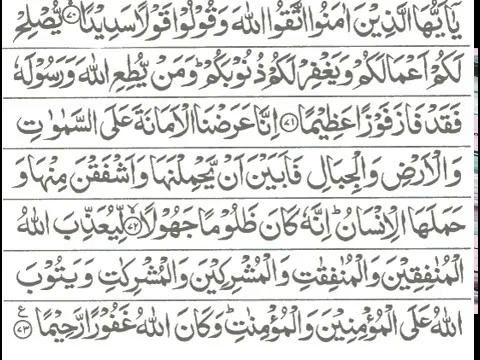 يٰۤاَيُّهَا الَّذِيْنَ اٰمَنُوا اتَّقُوا اللّٰهَ وَقُوْلُوْا قَوْلًا سَدِيْدًا ۙ﴿۷۰﴾ يُّصْلِحْ
لَكُمْ اَعْمَالَكُمْ وَيَغْفِرْ لَكُمْ ذُنُوْبَكُمْ ؕ وَمَنْ يُّطِعِ اللّٰهَ وَرَسُوْلَهٗ
فَقَدْ فَازَ فَوْزًا عَظِيْمًا ﴿۷۱﴾ اِنَّا عَرَضْنَا الْاَمَانَةَ عَلَى السَّمٰوٰتِ
وَالْاَرْضِ وَالْجِبَالِ فَاَبَيْنَ اَنْ يَّحْمِلْنَهَا وَاَشْفَقْنَ مِنْهَا وَ
حَمَلَهَا الْاِنْسَانُ ؕ اِنَّهٗ كَانَ ظَلُوْمًا جَهُوْلًا ۙ﴿۷۲﴾ لِّيُعَذِّبَ اللّٰهُ
الْمُنٰفِقِيْنَ وَالْمُنٰفِقٰتِ وَالْمُشْرِكِيْنَ وَالْمُشْرِكٰتِ وَيَتُوْبَ
اللّٰهُ عَلَى الْمُؤْمِنِيْنَ وَالْمُؤْمِنٰتِ ؕ وَكَانَ اللّٰهُ غَفُوْرًا رَّحِيْمًا ﴿۷۳﴾ ع